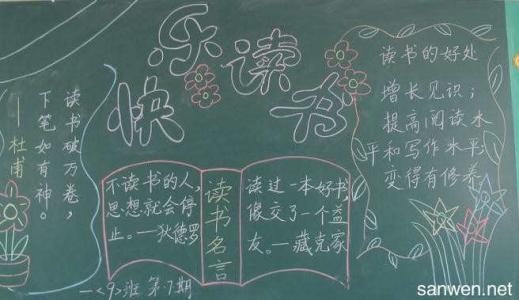 快乐读书
读书破万卷，
下笔如有神。
——杜甫
不读书的人，
思想就会停
止。——狄德罗
读书名言
读过一本好书，
像交了一个益
友。——藏克家
读书的好处
增长见识；
提高阅读水
平和写作水平；
变得有修养
一<9>班 第 期
sanwen.net